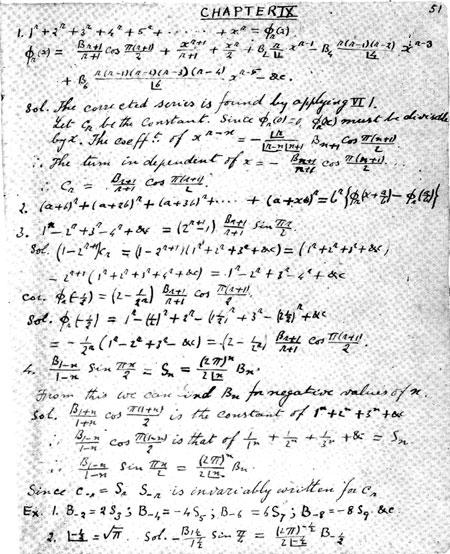 CHAPTER IX 51
1. 1^r + 2^r + 3^r + 4^r + 5^r + ...... + x^r = φ_r(x)
φ_r(x) = B_{r+1}/(r+1) cos π(r+1)/2 + x^{r+1}/(r+1) + x^r/2 + B_2 r/|2 x^{r-1} - B_4 r(r-1)(r-2)/|4 x^{r-3}
+ B_6 r(r-1)(r-2)(r-3)(r-4)/|6 x^{r-5} - &c.
Sol. The corrected series is found by applying VI 1.
Let C_r be the Constant. Since φ_r(0)=0, φ_r(x) must be divisible
by x. The coefft. of x^{r-n} = - |r/(|r-n |n+1) B_{n+1} cos π(n+1)/2
∴ The term independent of x = - B_{r+1}/(r+1) cos π(r+1)/2 ...
∴ C_r = B_{r+1}/(r+1) cos π(r+1)/2.
2. (a+b)^r + (a+2b)^r + (a+3b)^r + ... + (a+xb)^r = b^r {φ_r(x + a/b) - φ_r(a/b)}
3. 1^r - 2^r + 3^r - 4^r + &c = (2^{r+1} - 1) B_{r+1}/(r+1) sin πr/2.
Sol. (1 - 2^{r+1})C_r = (1 - 2^{r+1})(1^r + 2^r + 3^r + &c) = (1^r + 2^r + 3^r + &c)
- 2^{r+1}(1^r + 2^r + 3^r + 4^r + &c) = 1^r - 2^r + 3^r - 4^r + &c
Cor. φ_r(-1/2) = (2 - 1/2^r) B_{r+1}/(r+1) cos π(r+1)/2.
Sol. φ_r(-1/2) = 1^r - (1/2)^r + 2^r - (1 1/2)^r + 3^r - (2 1/2)^r + &c
= - 1/2^r (1^r - 2^r + 3^r - &c) = (2 - 1/2^r) B_{r+1}/(r+1) cos π(r+1)/2.
4. B_{1-n}/(1-n) sin πn/2 = S_n = (2π)^n/(2|n) B_n.
From this we can find B_n for negative values of n.
Sol. B_{1+n}/(1+n) cos π(1+n)/2 is the constant of 1^n + 2^n + 3^n + &c
∴ B_{1-n}/(1-n) cos π(1-n)/2 is that of 1/1^n + 1/2^n + 1/3^n + &c = S_n
∴ B_{1-n}/(1-n) sin πn/2 = (2π)^n/(2|n) B_n.
Since C_{-r} = S_r S_{-r} is invariably written for C_r
Ex. 1. B_{-2} = 2S_3; B_{-4} = -4S_5; B_{-6} = 6S_7; B_{-8} = -8S_9. &c.
2. |-1/2 = √π. Sol. - B_{1 1/2}/(1 1/2) sin π/4 = (2π)^{-1/2}/(2|-1/2) B_{-1/2}